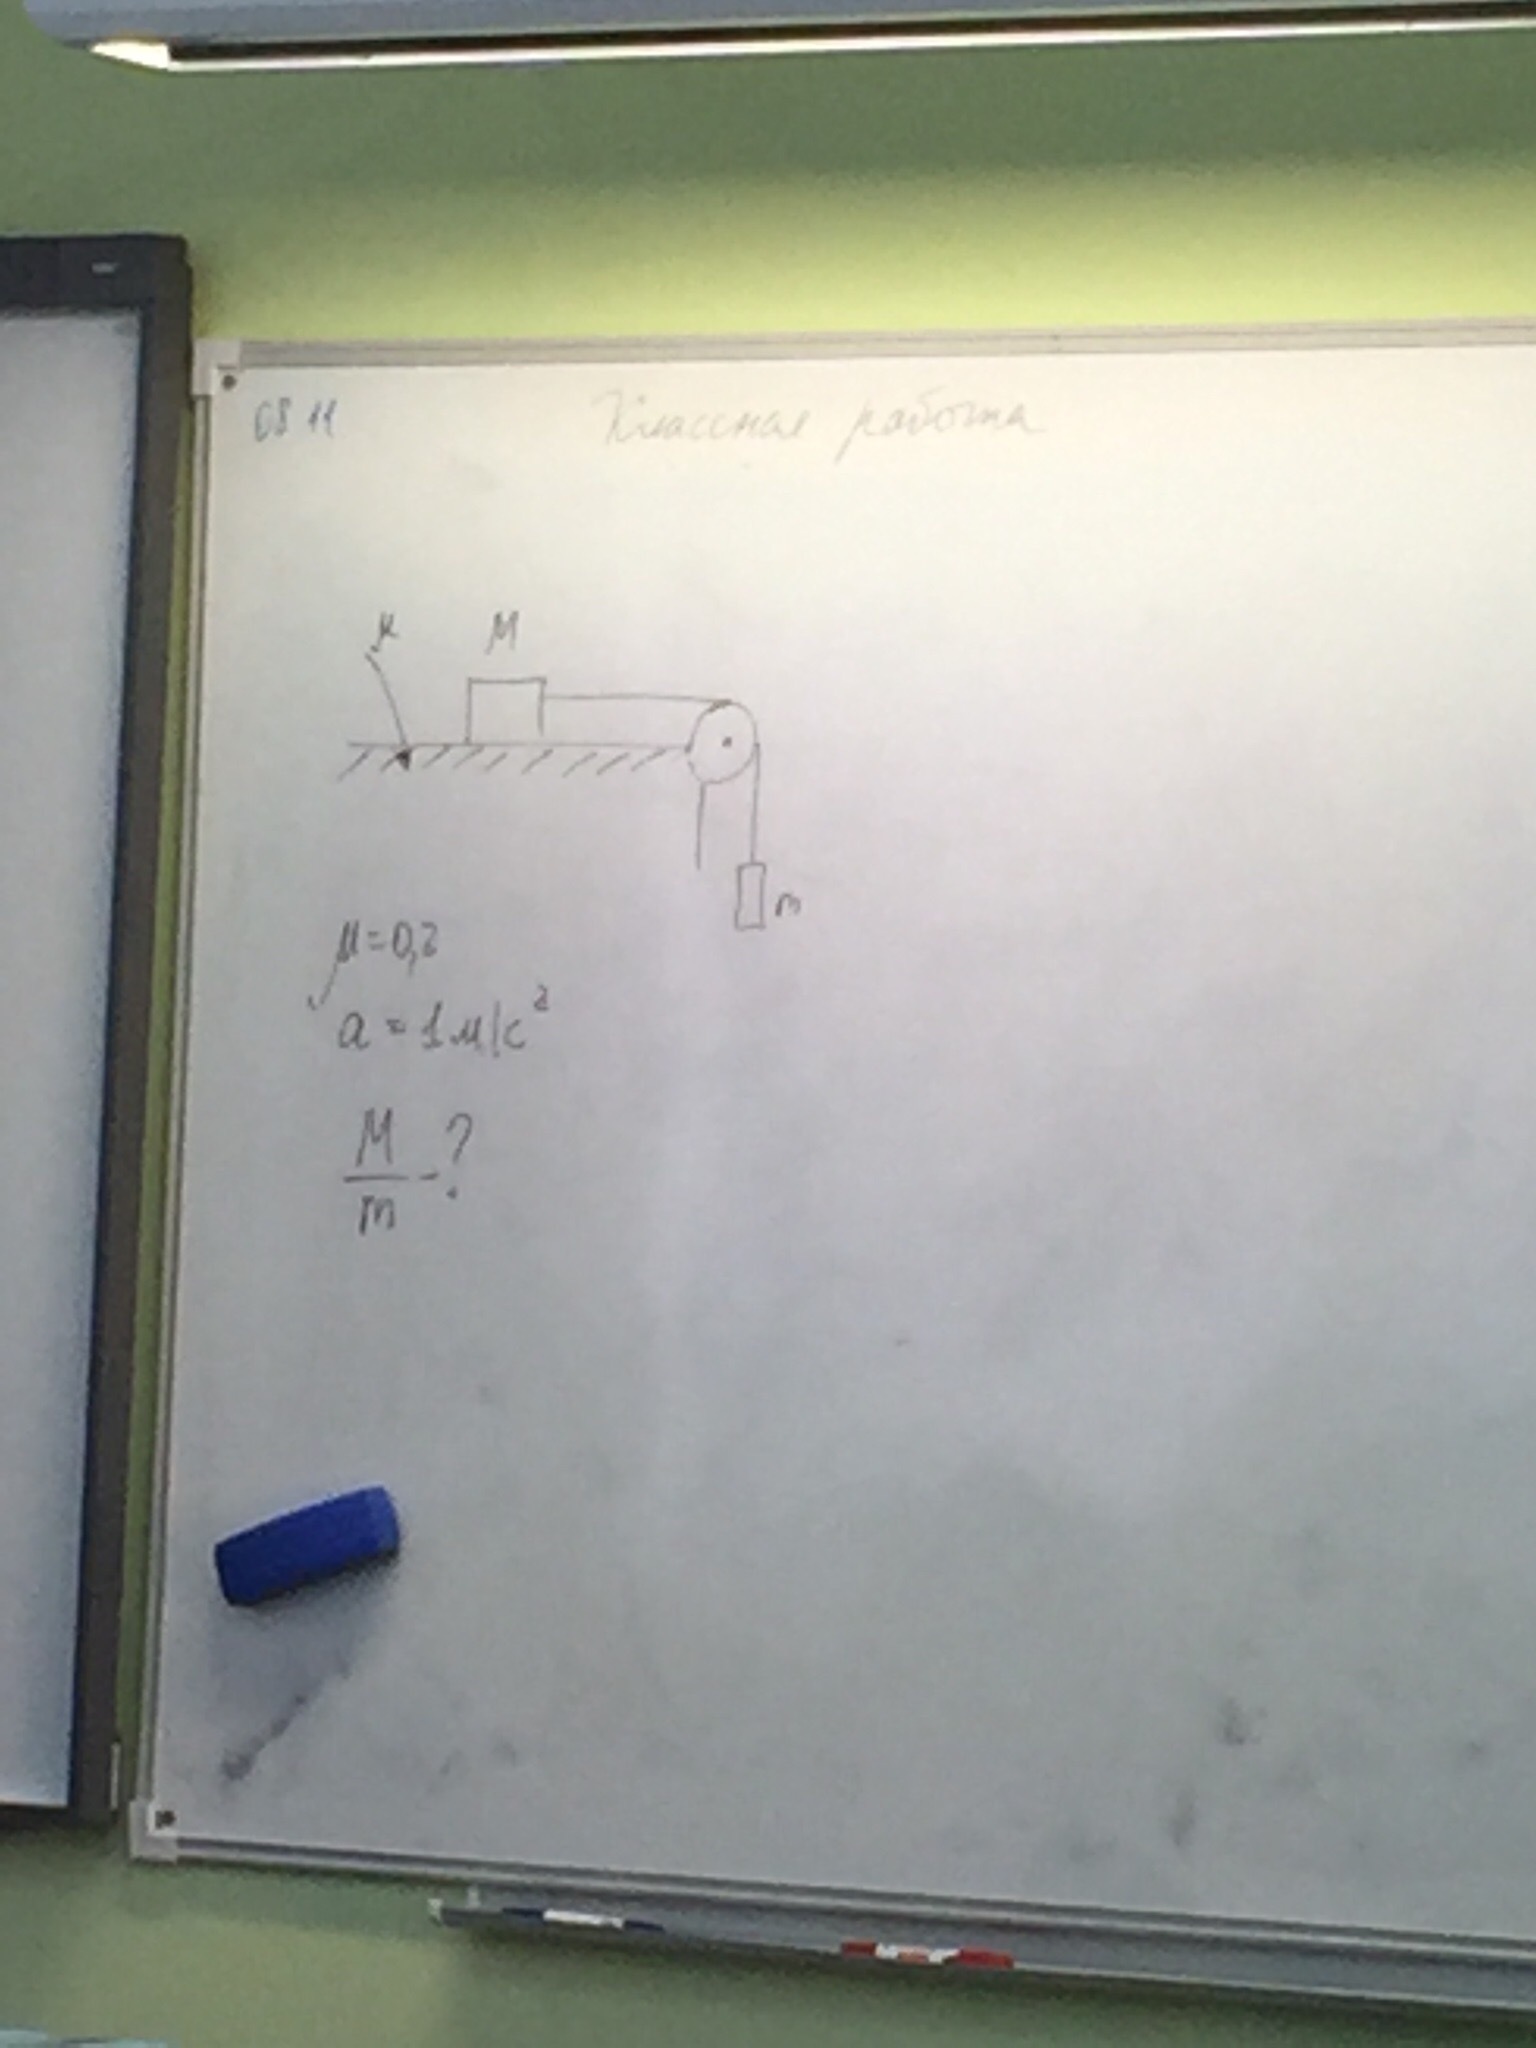 08 11
Классная работа
μ
M
m
μ=0,2
a = 1 м/с²
M
—?
m